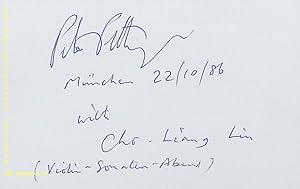 Peter
München 22/10/86
with
Cho-Liang Lin
(Violin-Sonaten-Abend)